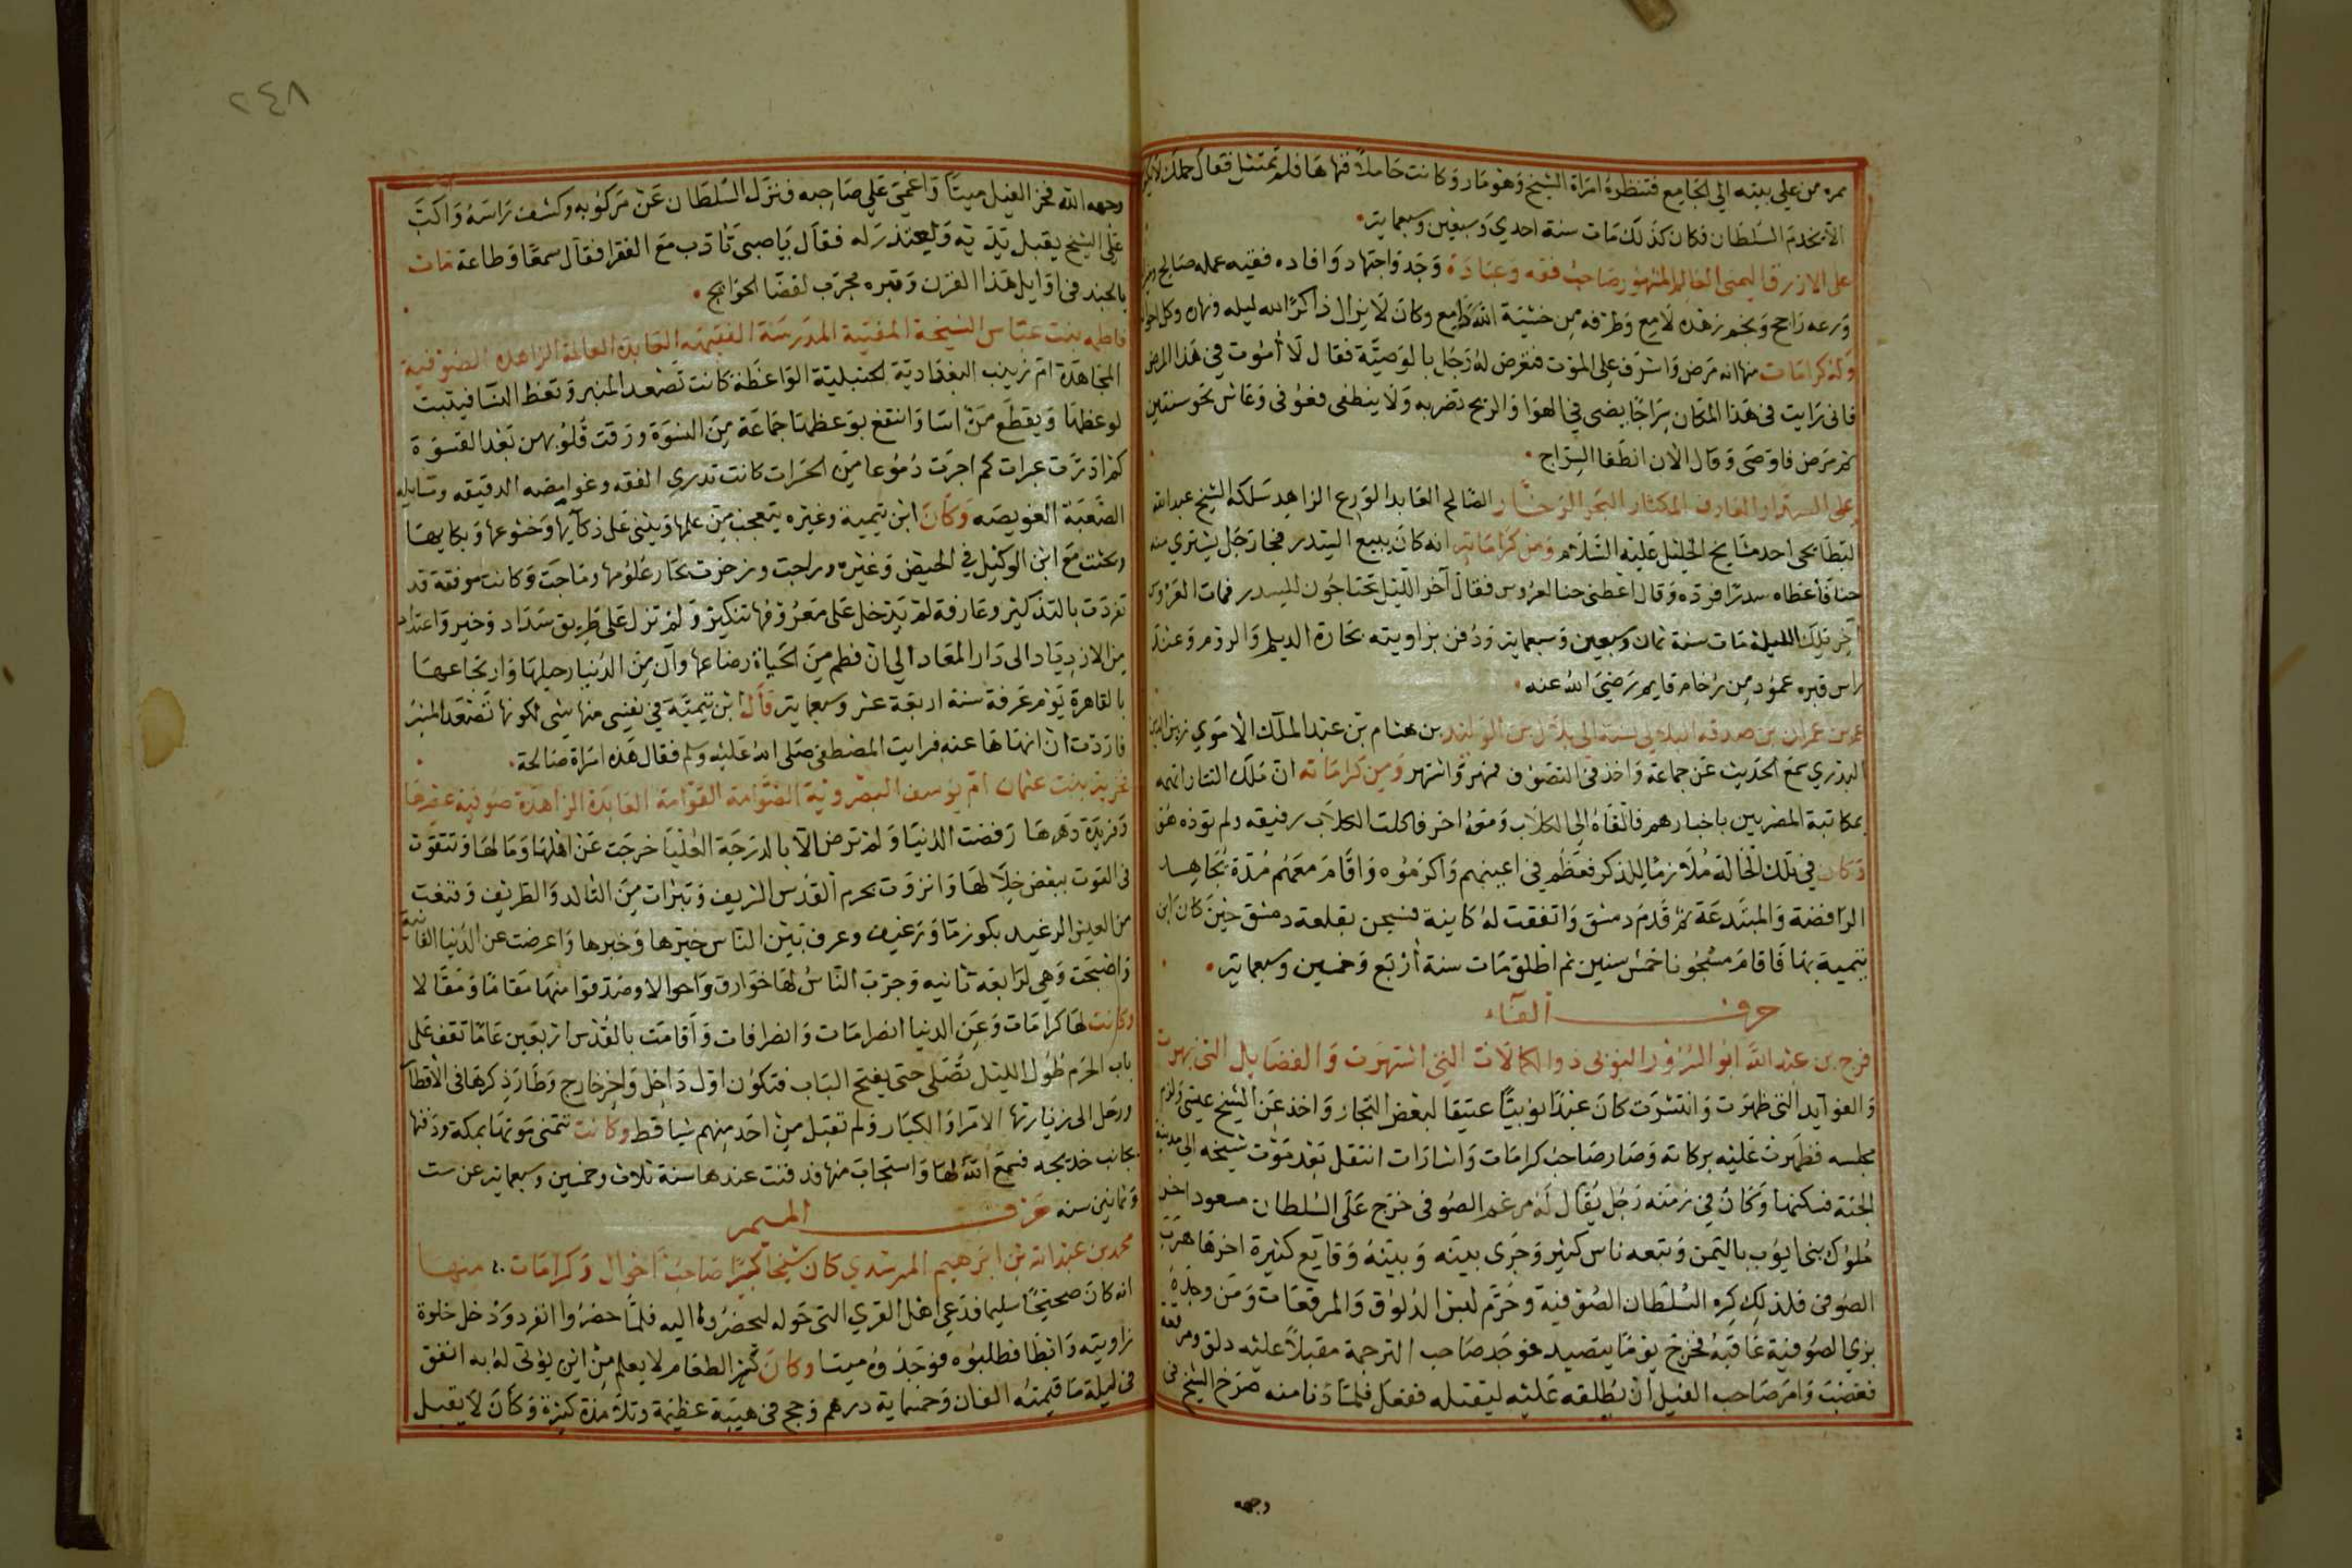 ممره من على بيته الي الجامع فتنظره امرأة الشيخ وهو مار وكانت حاملا فنهاها فلم تمتثل فقال حملك لا يكون
الا يخدم السلطان فكان كذلك مات سنة احدي وسبعين وسبعماية
على الازرق اليمنى العالم المشهور صاحب فقه وعبادة وجد واجتهاد وافاده فقيه عمله صالح
ورعه راجح ونجم زهده لامع وطرفه من خشية الله دامع وكان لا يزال ذاكرا لله ليله ونهاره
وله كرامات منها انه مرض واشرف على الموت فتعرض له رجل بالوصية فقال لا أموت في هذا المرض
فانى رايت فى هذا المكان سراجا يضى في الهوا والريح تضربه ولا ينطفى فعوفى وعاش نحو سنتين
ثم مرض فاوصى وقال الان انطفا السراج
على السدار العارف المكثار البحر الزخار الصالح العابد الورع الزاهد سلكه الشيخ عبد الله
البطايحى احد مشايخ الخليل عليه السلام ومن كراماته انه كان يبيع السدر فجا رجل يشتري منه
حنا فأعطاه سدرا فرده وقال اعطنى حنا لعروس فقال آخر الليل تحتاجون للسدر فمات العروس
آخر تلك الليلة مات سنة ثمان وسبعين وسبعماية ودفن بزاويته بحارة الديلم والروم وعند
راس قبره عمود من رخام قايم رضي الله عنه
عمر بن عمران بن صدقه البلالى نسبة الى بلال بن الوليد بن هشام بن عبد الملك الاموي زين الدين
البدري سمع الحديث عن جماعة واخذ فى التصوف فمهر واشتهر ومن كراماته ان ملك التتار اتهمه
بمكاتبة المصريين باخبارهم فالقاه الى الكلاب ومعه اخر فاكلت الكلاب رفيقه ولم توذه هو
وكان في تلك الحالة ملازما للذكر فعظم فى اعينهم واكرموه واقام معهم مدة يجاهد
الرافضة والمبتدعة ثم قدم دمشق واتفقت له كاينة فسجن بقلعة دمشق حين كان ابن
تيمية بها فاقام مسجونا خمس سنين ثم اطلق مات سنة أربع وخمسين وسبعماية
حرف الفاء
فرج بن عبد الله ابو السرور النوبى ذو الكمالات التى اشتهرت والفضايل التى بهرت
والفوايد التى ظهرت وانتشرت كان عبدا نوبيا عتيقا لبعض التجار واخذ عن الشيخ عيسى ولزم
مجلسه فظهرت عليه بركاته وصار صاحب كرامات واشارات انتقل بعد موت شيخه الى مدينة
الجنة فسكنها وكان في زمنه رجل يقال له مرغم الصوفى خرج على السلطان مسعود اخر
ملوك بنى ايوب باليمن وتبعه ناس كثير وجرى بينه وبينه وقايع كثيرة اخرها هرب
الصوفى فلذلك كره السلطان الصوفية وحرم لبس الدلوق والمرقعات ومن وجده
بزي الصوفية عاقبه فخرج يوما يتصيد فوجد صاحب الترجمة مقبلا عليه دلق ومرقعة
فغضب وامر صاحب الفيل أن يطلقه عليه ليقتله ففعل فلما دنا منه صرخ الشيخ فى
وجهه
٢٤٨
وجهه الله فخر الفيل ميتا واغمى على صاحبه فنزل السلطان عن مركوبه وكشف راسه واكب
على الشيخ يقبل يديه ويعتذر له فقال يا صبى تأدب مع الفقرا فقال سمعا وطاعة مات
بالجند فى اوايل هذا القرن وقبره مجرب لقضا الحوايج
فاطمه بنت عباس الشيخة المفتية المدرسة الفقيهة العابدة العالمة الزاهده الصوفية
المجاهدة ام زينب البغدادية الحنبلية الواعظة كانت تصعد المنبر وتعظ النسا فينيب
لوعظها ويقطع من اسا وانتفع بوعظها جماعة من النسوة ورقت قلوبهن بعد القسوة
كم اذرت عبرات كم اجرت دموعا من الحسرات كانت تدري الفقه وغوامضه الدقيقه ومسايله
الصعبة العويصه وكان ابن تيمية وغيره يتعجب من علمها ويثنى على ذكايها وخشوعها وبكايها
وبحثت مع ابن الوكيل في الحيض وغيره وراجت وزخرت بحار علومها وماجت وكانت موفقة قد
تفردت بالتذكير وعارفة لم يدخل على معروفها تنكير ولم تزل على طريق سداد وخير واعتداد
من الازدياد الى دار المعاد الي ان فطم من الحياة رضاعها وآن من الدنيا رحيلها وارتجاعها
بالقاهرة يوم عرفة سنة اربعة عشر وسبعماية قال ابن تيمية في نفسى منها شى لكونها تصعد المنبر
فاردت ان انهاها عنه فرايت المصطفى صلى الله عليه وسلم فقال هذه امراة صالحة
بنت عثمان ام يوسف البصروية الصوامة القوامة العابدة الزاهدة صوفية عصرها
وفريدة دهرها رفضت الدنيا ولم ترض الا بالدرجة العليا خرجت عن اهلها ومالها وتقوت
فى القوت ببعض خلالها وانزوت بحرم القدس الشريف وتبرات من التالد والطريف وقنعت
من العيش الرغيد بكوز ما ورغيف وعرف بين الناس خيرها وخبرها واعرضت عن الدنيا الفانية
واضحت وهي لرابعة ثانيه وجرب الناس لها خوارق واحوالا وصدقوا منها مقاما ومقالا
وكانت لها كرامات وعن الدنيا انصرامات وانصرافات وأقامت بالقدس اربعين عاما تقف على
باب الحرم طول الليل تصلى حتى يفتح الباب فتكون اول داخل واخر خارج وطار ذكرها فى الاقطار
ورحل الى زيارتها الامرا والكبار ولم تقبل من احد منهم شيا قط وكانت تتمنى موتها بمكة ودفنها
بجانب خديجه فسمع الله لها واستجاب منها فدفنت عندها سنة ثلاث وخمسين وسبعماية عن ست
وثمانين سنه
حرف الميم
محمد بن عبد الله بن ابرهيم المرشدي كان شيخا كبيرا صاحب أحوال وكرامات منها
انه كان صحيحا سليما فدعى اهل القري التى حوله ليحضروا اليه فلما حضروا انفرد ودخل خلوة
زاويته وابطا فطلبوه فوجدوه ميتا وكان كثير الطعام لا يعلم من اين يؤتى له به انفق
فى ليلة ما قيمته الفان وخمسماية درهم وحج فى هيبة عظيمة وتلامذة كثيرة وكان لا يقبل